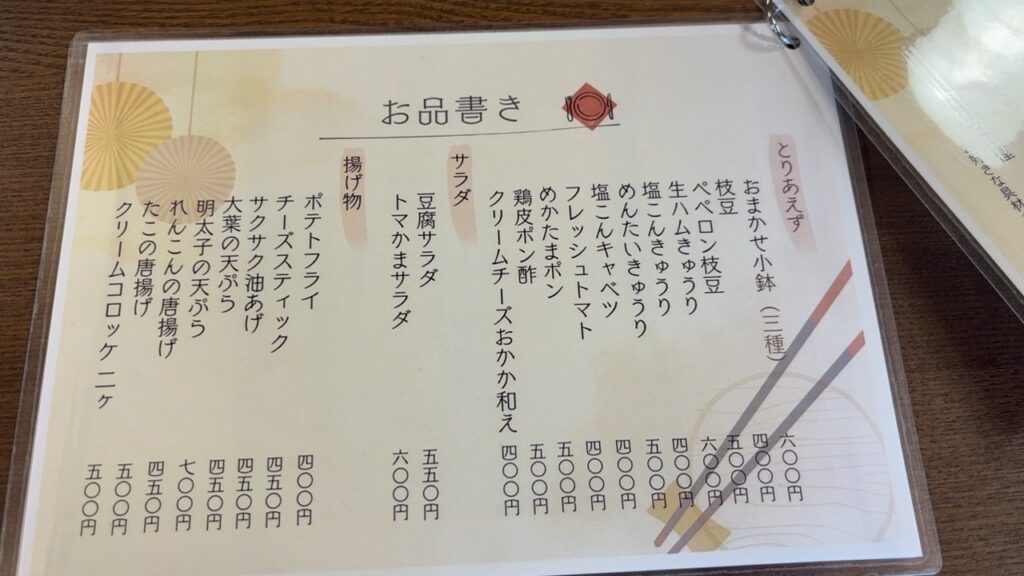 お品書き
とりあえず
おまかせ小鉢（三種） 六〇〇円
枝豆 四〇〇円
ペペロン枝豆 五〇〇円
生ハムきゅうり 六〇〇円
塩こんきゅうり 四〇〇円
めんたいきゅうり 五〇〇円
塩こんキャベツ 四〇〇円
フレッシュトマト 四〇〇円
めかたまポン 五〇〇円
鶏皮ポン酢 五〇〇円
クリームチーズおかか和え 四〇〇円
サラダ
豆腐サラダ 五五〇円
トマかまサラダ 六〇〇円
揚げ物
ポテトフライ 四〇〇円
チーズスティック 四五〇円
サクサク油あげ 四五〇円
大葉の天ぷら 四五〇円
明太子の天ぷら 七〇〇円
れんこんの唐揚げ 四五〇円
たこの唐揚げ 五〇〇円
クリームコロッケ二ヶ 五〇〇円